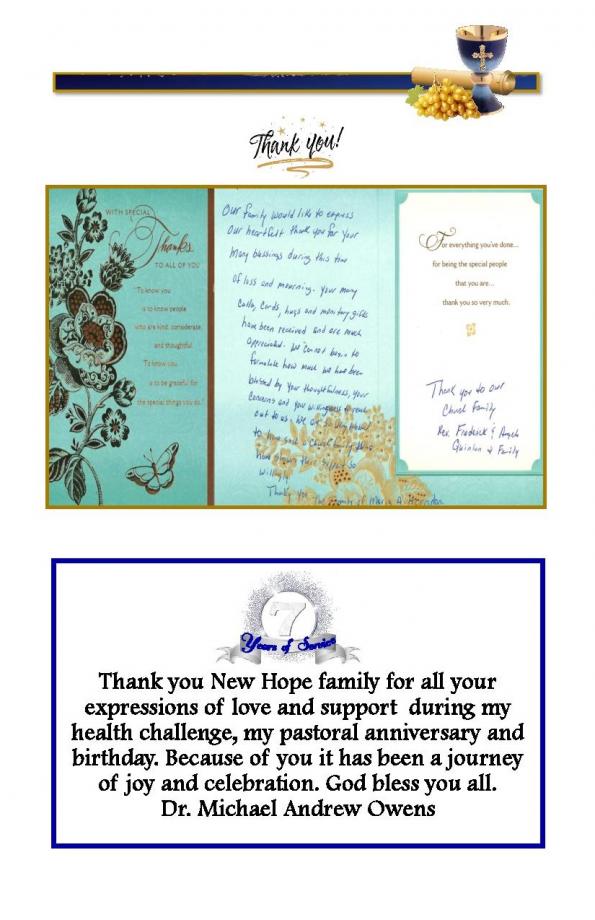 Thank you!
WITH SPECIAL
Thanks
TO ALL OF YOU
"To know you
is to know people
who are kind, considerate
and thoughtful.
To know you
is to be grateful for
the special things you do."
Our family would like to express
Our heartfelt thank you for your
Many blessings during this time
of loss and mourning. Your many
Calls, Cards, hugs and monitary gifts
have been received and are much
Appreciated. We cannot begin to
formulate how much we have been
blessed by your thoughtfulness, your
Concerns and your willingness to reach
out to us. We are so very blessed
to have such a Church family who
have shown their support so
willingly.
Thank you, The family of
For everything you've done...
for being the special people
that you are...
thank you so very much.
Thank you to our
Church Family
Rev. Frederick & Angela
Quinlan & Family
7
Years of Service
Thank you New Hope family for all your
expressions of love and support during my
health challenge, my pastoral anniversary and
birthday. Because of you it has been a journey
of joy and celebration. God bless you all.
Dr. Michael Andrew Owens